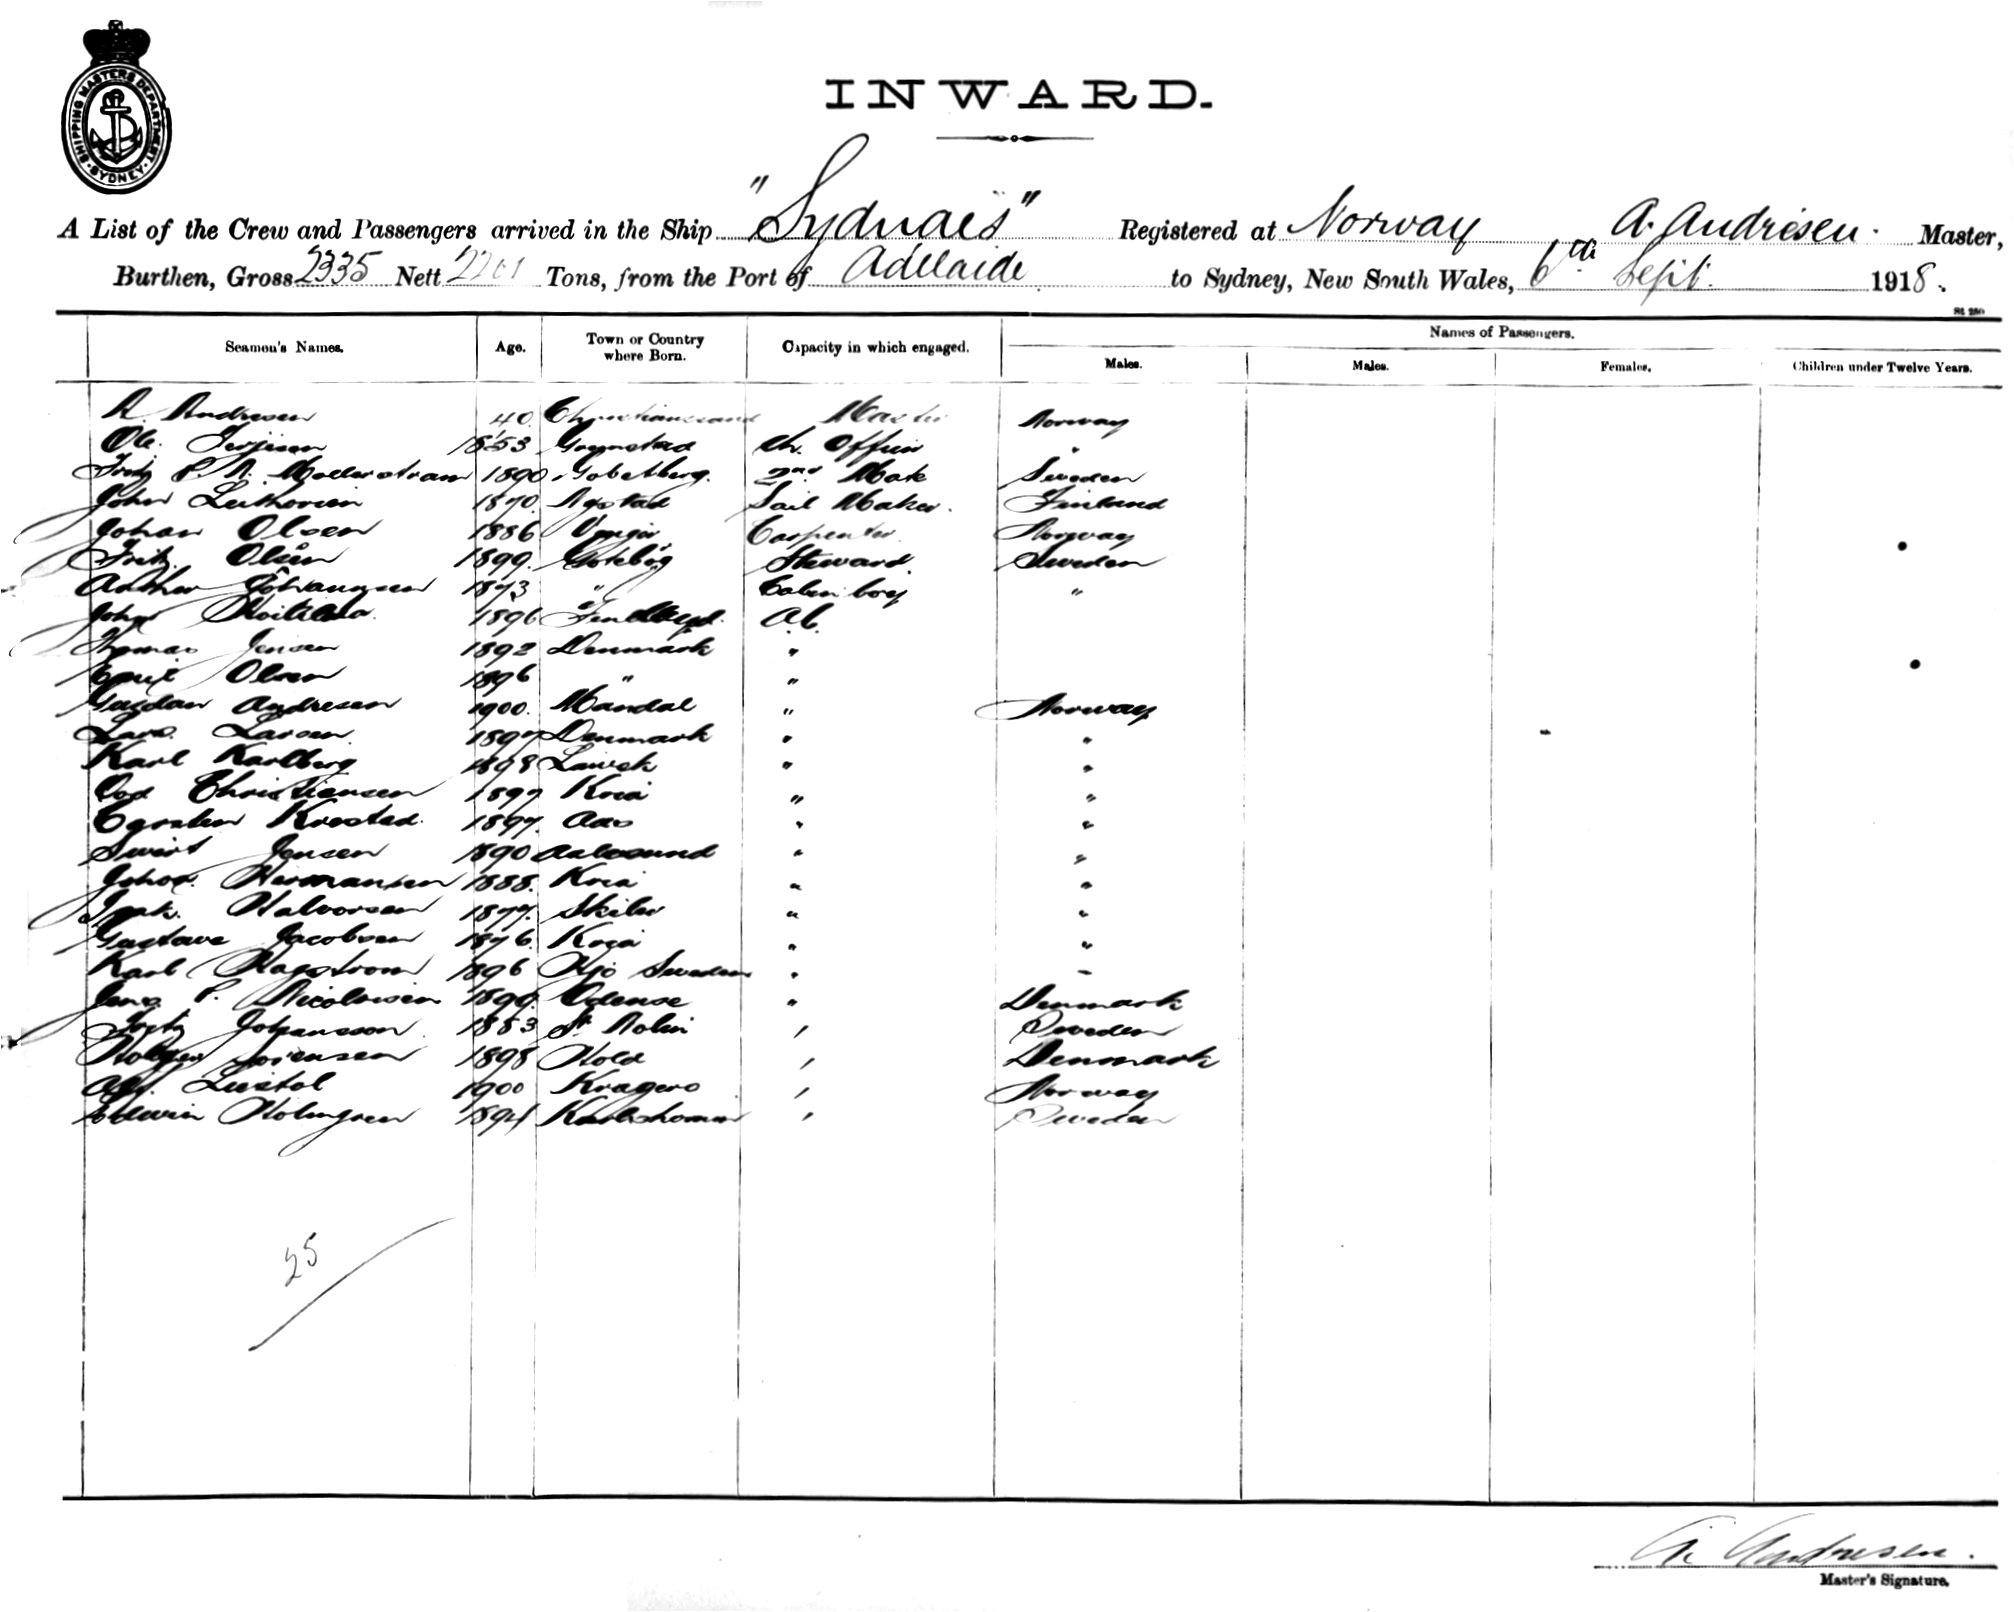 SHIPPING MASTERS DEPARTMENT. SYDNEY
INWARD.
A List of the Crew and Passengers arrived in the Ship "Sydnaes" Registered at Norway A. Andresen. Master,
Burthen, Gross 2335 Nett 2201 Tons, from the Port of Adelaide to Sydney, New South Wales, 6th Sept. 1918.
Names of Passengers.
Seamen's Names. Age. Town or Country where Born. Capacity in which engaged. Males. Males. Females. Children under Twelve Years.
A. Andresen 40 Christianssand Master Norway
Ole Terjesen 1853 Ch. Officer "
Fritz 1890 2nd Mate Sweden
John 1870 Sail Maker. Finland
Johan Olsen 1886 Carpenter Norway
Fritz Olsen 1899 Steward Sweden
1873 " Cabin boy "
John 1896 A.B.
Thomas Jensen 1892 Denmark "
Emil Olsen 1896 " "
Andresen 1900. Mandal " Norway
Lars Larsen 1897 Denmark " "
Karl Karlberg 1898 " "
Christiansen 1897 Kria " "
1897. Aas " "
Jensen 1890 Aalesund " "
Johan Hermansen 1888. Kria " "
Isak. Halvorsen 1877. " "
Gustave Jacobsen 1876. Kria " "
Karl Hagstrom 1896 Hjo Sweden " "
Jens P. Nicolaisen 1899 Odense " Denmark
Fritz Johansson 1883 " Sweden
Holger Sorensen 1898 " Denmark
1900 Kragero " Norway
Holmgren Karlshamn " Sweden
25
A. Andresen.
Master's Signature.